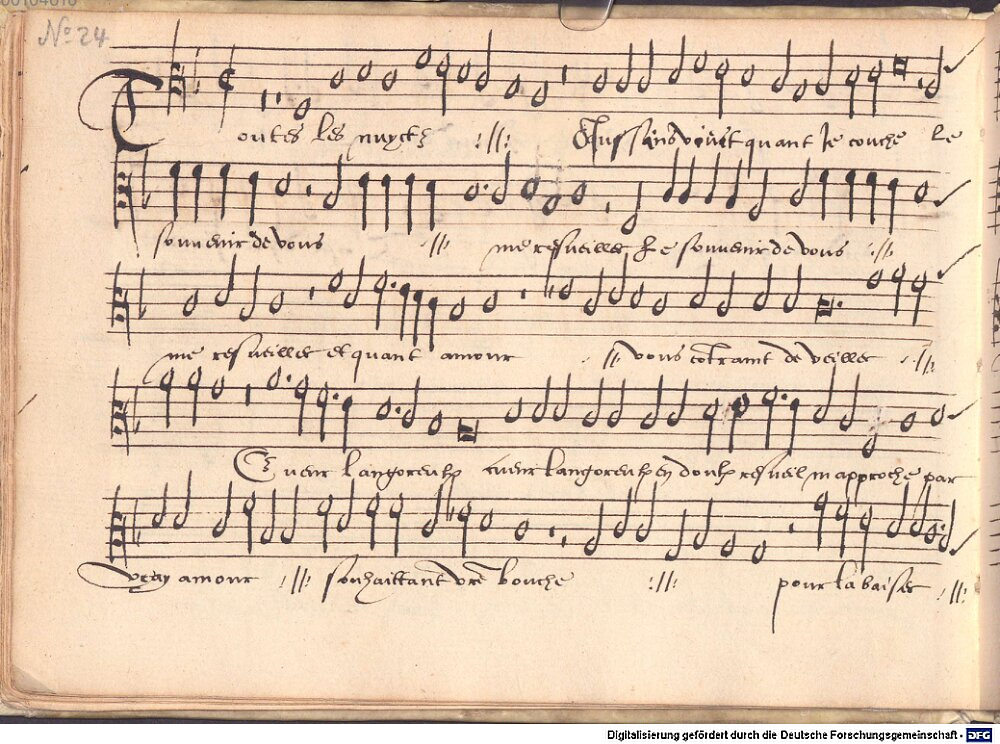 No 24
Toutes les nuyctz :||: quant Je couche le
souvenir de vous :||: me resveille Le souvenir de vous :||:
me resveilles et quant amour :||: vous de veilles :||:
Cueur langoreulx cueur langoreulx en doulx resveil m approche par
vray amour :||: souhaittant vre bouche :||: pour la baiser :||:
Digitalisierung gefördert durch die Deutsche Forschungsgemeinschaft - DFG